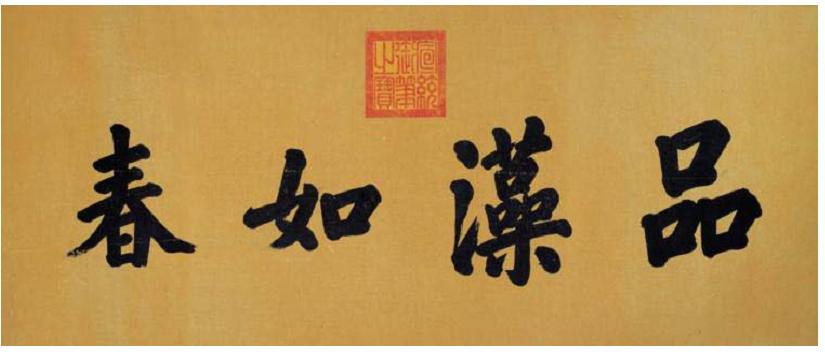 宣統
御筆
之寶
品藻如春